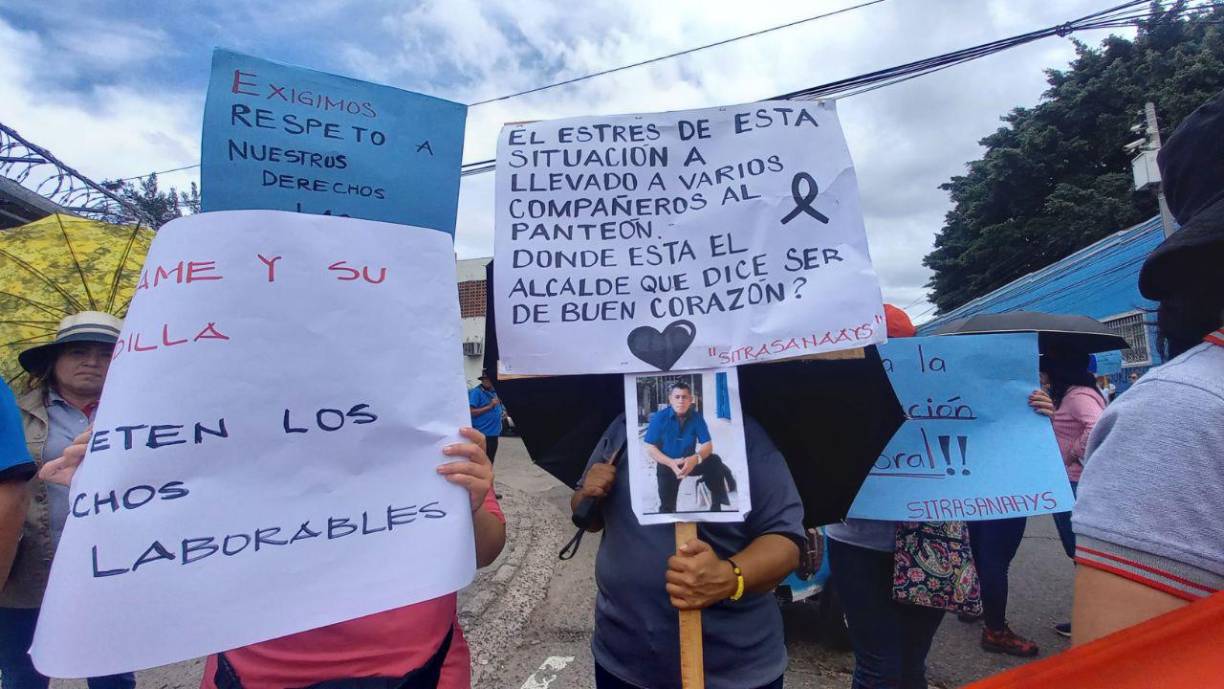 EXIGIMOS
RESPETO A
NUESTROS
DERECHOS
AME Y SU
DILLA
ETEN LOS
CHOS
LABORABLES
EL ESTRES DE ESTA
SITUACIÓN A
LLEVADO A VARIOS
COMPAÑEROS AL
PANTEÓN.
DONDE ESTA EL
ALCALDE QUE DICE SER
DE BUEN CORAZÓN?
"SITRASANAAYS"
a la
ción
oral!!
SITRASANAAYS